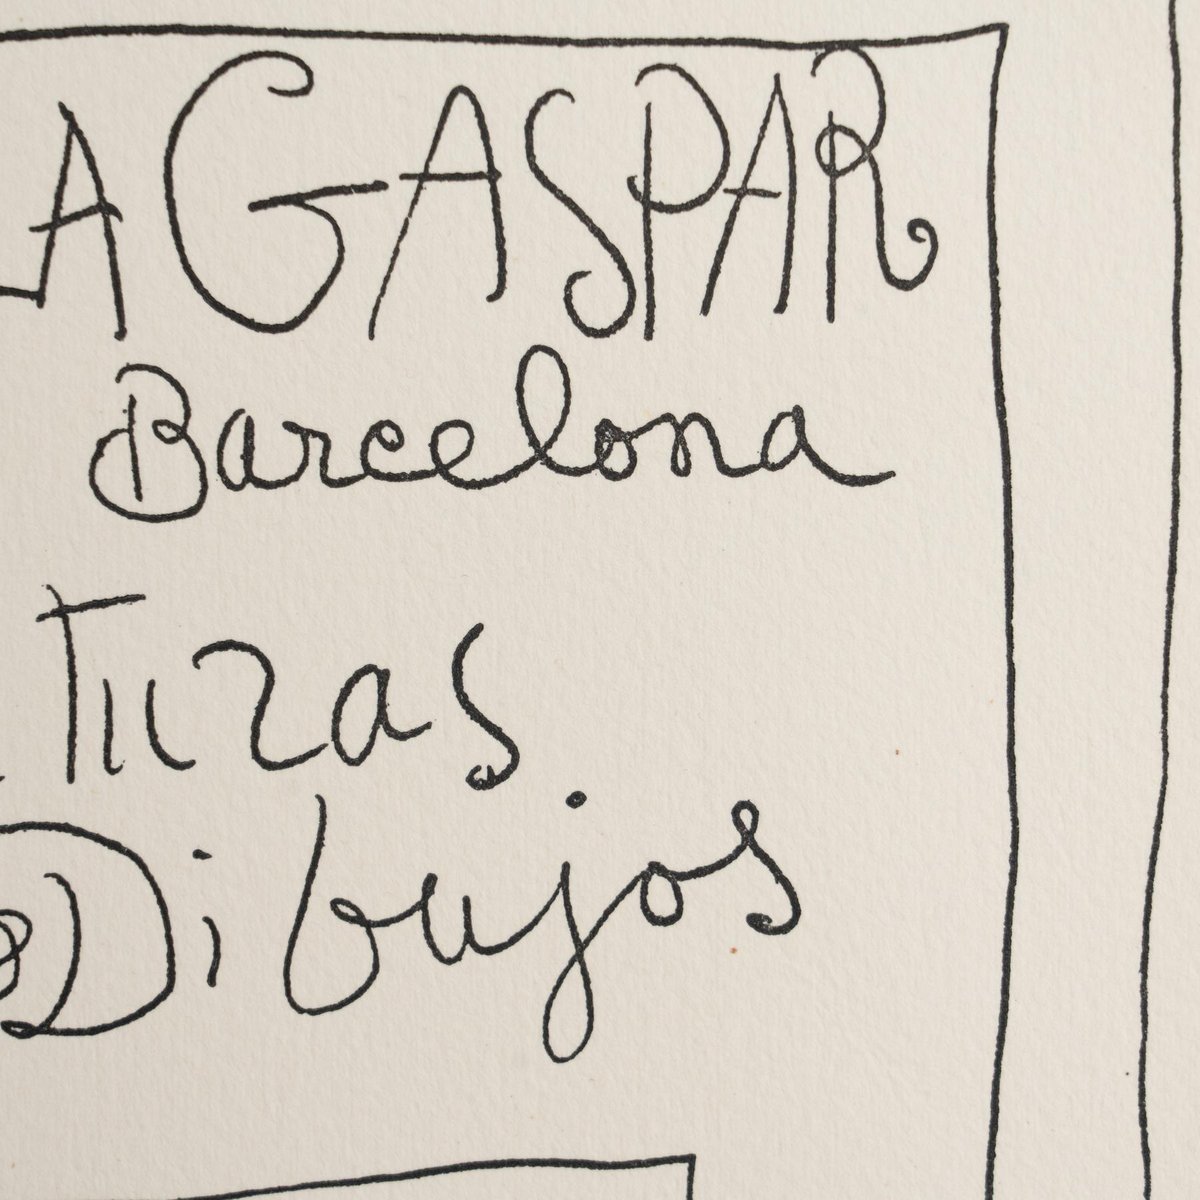 LA GASPAR
Barcelona
Turas
Dibujos